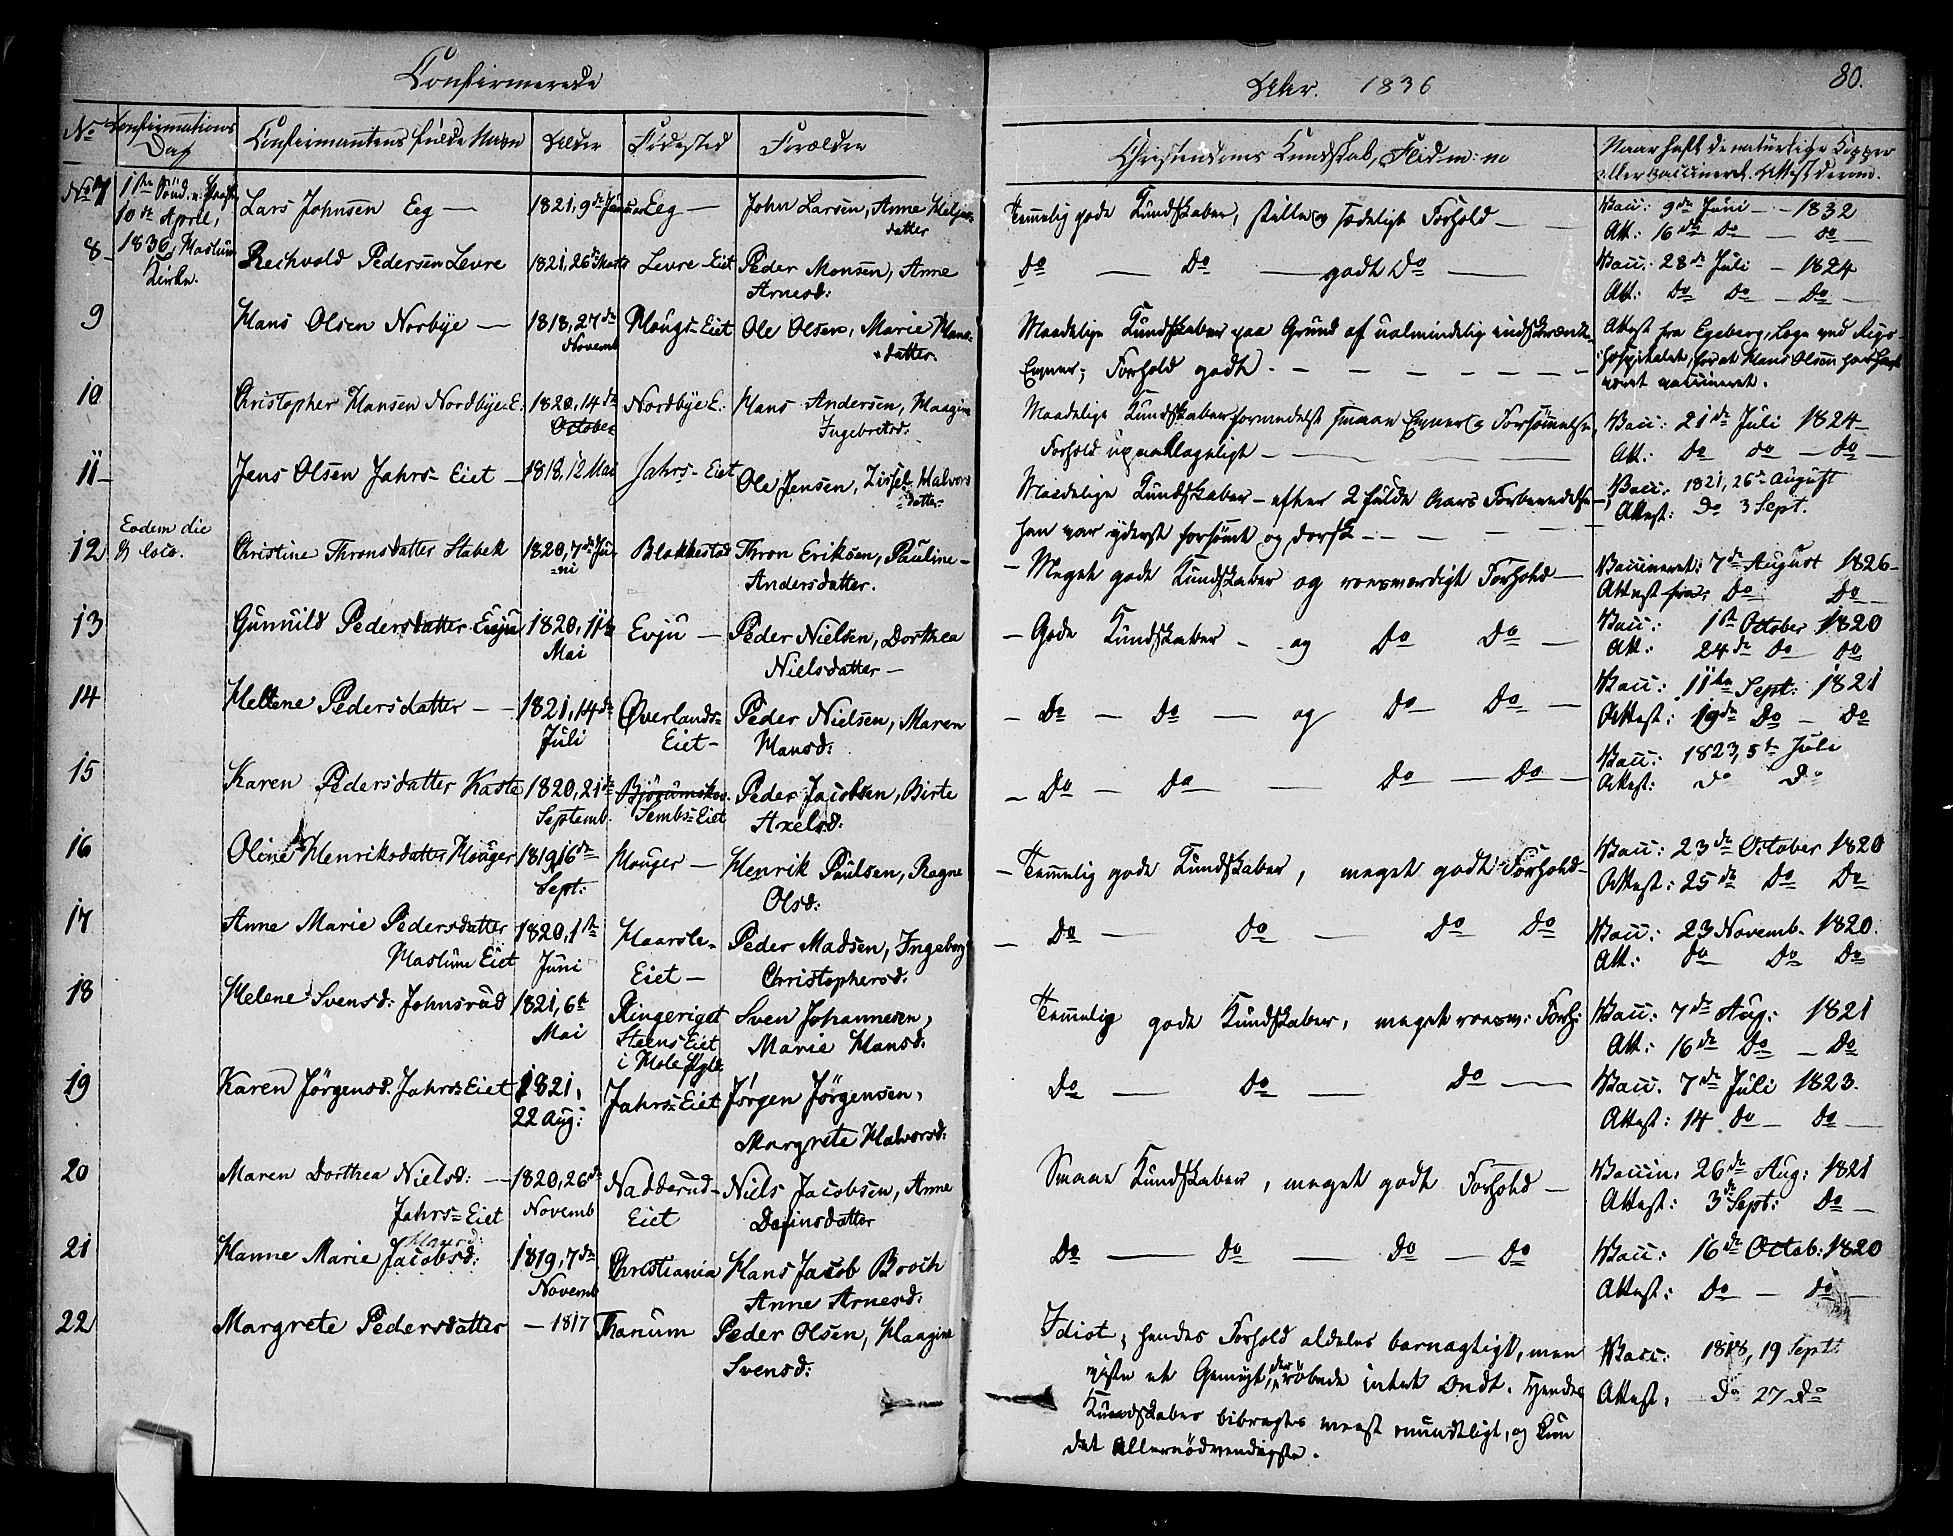 Confirmerede
Aar. 1836
80.
No Confirmations Dag
Confirmantens fulde Navn
Alder
Fødested
Forældre
Christendoms Kundskab, Flid m: m
Naar haft de naturlige Kopper
eller vaccineret. Attest derom.
No 7 1ste Sönd. n. Paaske Lars Johnsen Eeg — 1821, 9de Januar Eeg — John Larsen, Anne Helgesdatter
10de April,
1836, Haslum
Kirke.
Temmelig gode Kundskaber, stille og sædeligt Forhold —
Vacc: 9de Juni — 1832
Att: 16de Do — do —
8 Reihvold Pedersen Levre 1821, 26de Marts Levre-Eiet Peder Monsen, Anne
Arnesd:
Do — Do — godt Do —
Vacc: 28de Juli — 1824
Att: Do Do — Do —
9 Hans Olsen Norbye — 1818, 27de
Novemb Hougs-Eiet Ole Olsen, Marie Hansdatter.
Maadelige Kundskaber paa Grund af ualmindelig indskrænkte
Evner; Forhold godt. —
Attest fra Egeberg, Læge ved Rigshospitalet, for at Hans Olsen har
været vaccineret.
10 Christopher Hansen Nordbye E. 1820, 14de
October Nordbye E: Hans Andersen, Maagine
Ingebretsd:
Maadelige Kundskaber formedelst smaae Evner og Forsømmelse,
Forhold upaaklageligt —
Vacc: 21de Juli 1824
Att: Do do — Do —
11 — Jens Olsen Jahrs-Eiet — 1818, 12 Mai Jahrs-Eiet Ole Jensen, Zissel Halvors
datter
Maadelige Kundskaber — efter 2 fulde Aars Forberedelse —
han var yderst forsømt og dorsk —
Vacc: 1821, 26de August
Attest: Do 3 Sept.
Eodem die
& loco.
12 Christine Thronsdatter Stabek 1820, 7de Juni Blakkestad Thron Eriksen, Pauline
Andersdatter.
— Meget gode Kundskaber og roesværdigt Forhold —
Vaccineret: 7de August 1826
Attest fra, Do Do
13 Gunnild Pedersdatter Evju 1820, 11te
Mai Evju — Peder Nielsen, Dorthea
Nielsdatter —
— Gode Kundskaber — og Do Do —
Vacc: 1ste October 1820
Att: 24de Do Do
14 Hellene Pedersdatter — 1821, 14de
Juli Øverlands-
Eiet — Peder Nielsen, Maren
Hansd:
— Do — Do — og Do Do —
Vacc: 11te Sept: 1821
Attest: 19de Do — Do
15 Karen Pedersdatter Kaste 1820, 21de
Septemb. Bjørumskov
Sembs-Eiet Peder Jacobsen, Birte
Axelsd:
— Do — Do — Do — Do —
Vacc: 1823, 5te Juli
Attest: Do Do
16 Oline Henriksdatter Houger 1819, 16de
Sept: Houger — Henrik Paulsen, Ragne
Olsd:
— Temmelig gode Kundskaber, meget godt Forhold —
Vacc: 23de October 1820
Attest: 25de Do Do
17 Anne Marie Pedersdatter
Haslum Eiet 1820, 1ste
Juni Haarsle-
Eiet — Peder Madsen, Ingeborg
Christophersd:
— Do — Do — Do Do
Vacc: 23 Novemb. 1820.
Att: Do Do Do
18 Helene Svensd: Johnsrud 1821, 6te
Mai Ringeriget
Steens Eiet
i Hole Pgld. Sven Johannesen,
Marie Hansd:
Temmelig gode Kundskaber, meget roesv: Forh:
Vacc: 7de Aug: 1821
Att: 16de Do — Do
19 Karen Jörgensd. Jahrs-Eiet 1821,
22 Aug: Jahrs-Eiet Jørgen Jörgensen,
Margrete Halvorsd:
Do — Do — Do —
Vacc. 7de Juli 1823.
Attest: 14 Do — Do —
20 Maren Dorthea Nielsd: —
Jahrs-Eiet 1820, 26de
Novemb Nadderud-
Eiet Niels Jacobsen, Anne
Dafinsdatter
Smaae Kundskaber, meget godt Forhold —
Vaccin: 26de Aug: 1821
Attest: 3de Sept: Do —
21 Hanne Marie Jacobsd: Hansd: 1819, 7de
Novemb Christiania Hans Jacob Broch
Anne Arnesd:
Do — Do — Do — Do
Vacc: 16de Octob: 1820
Attest: Do — Do —
22 Margrete Pedersdatter — 1817 Thanum Peder Olsen, Maagine
Svensd:
Idiot; hendes Forhold aldeles barnagtigt, men
viste et Gemyt, der røbede intet Ondt. Hendes
Kundskaber bibragtes meest mundtligt, og kun
det Allernödvendigste.
Vacc: 1818, 19 Septr
Attest: Do 27 Do